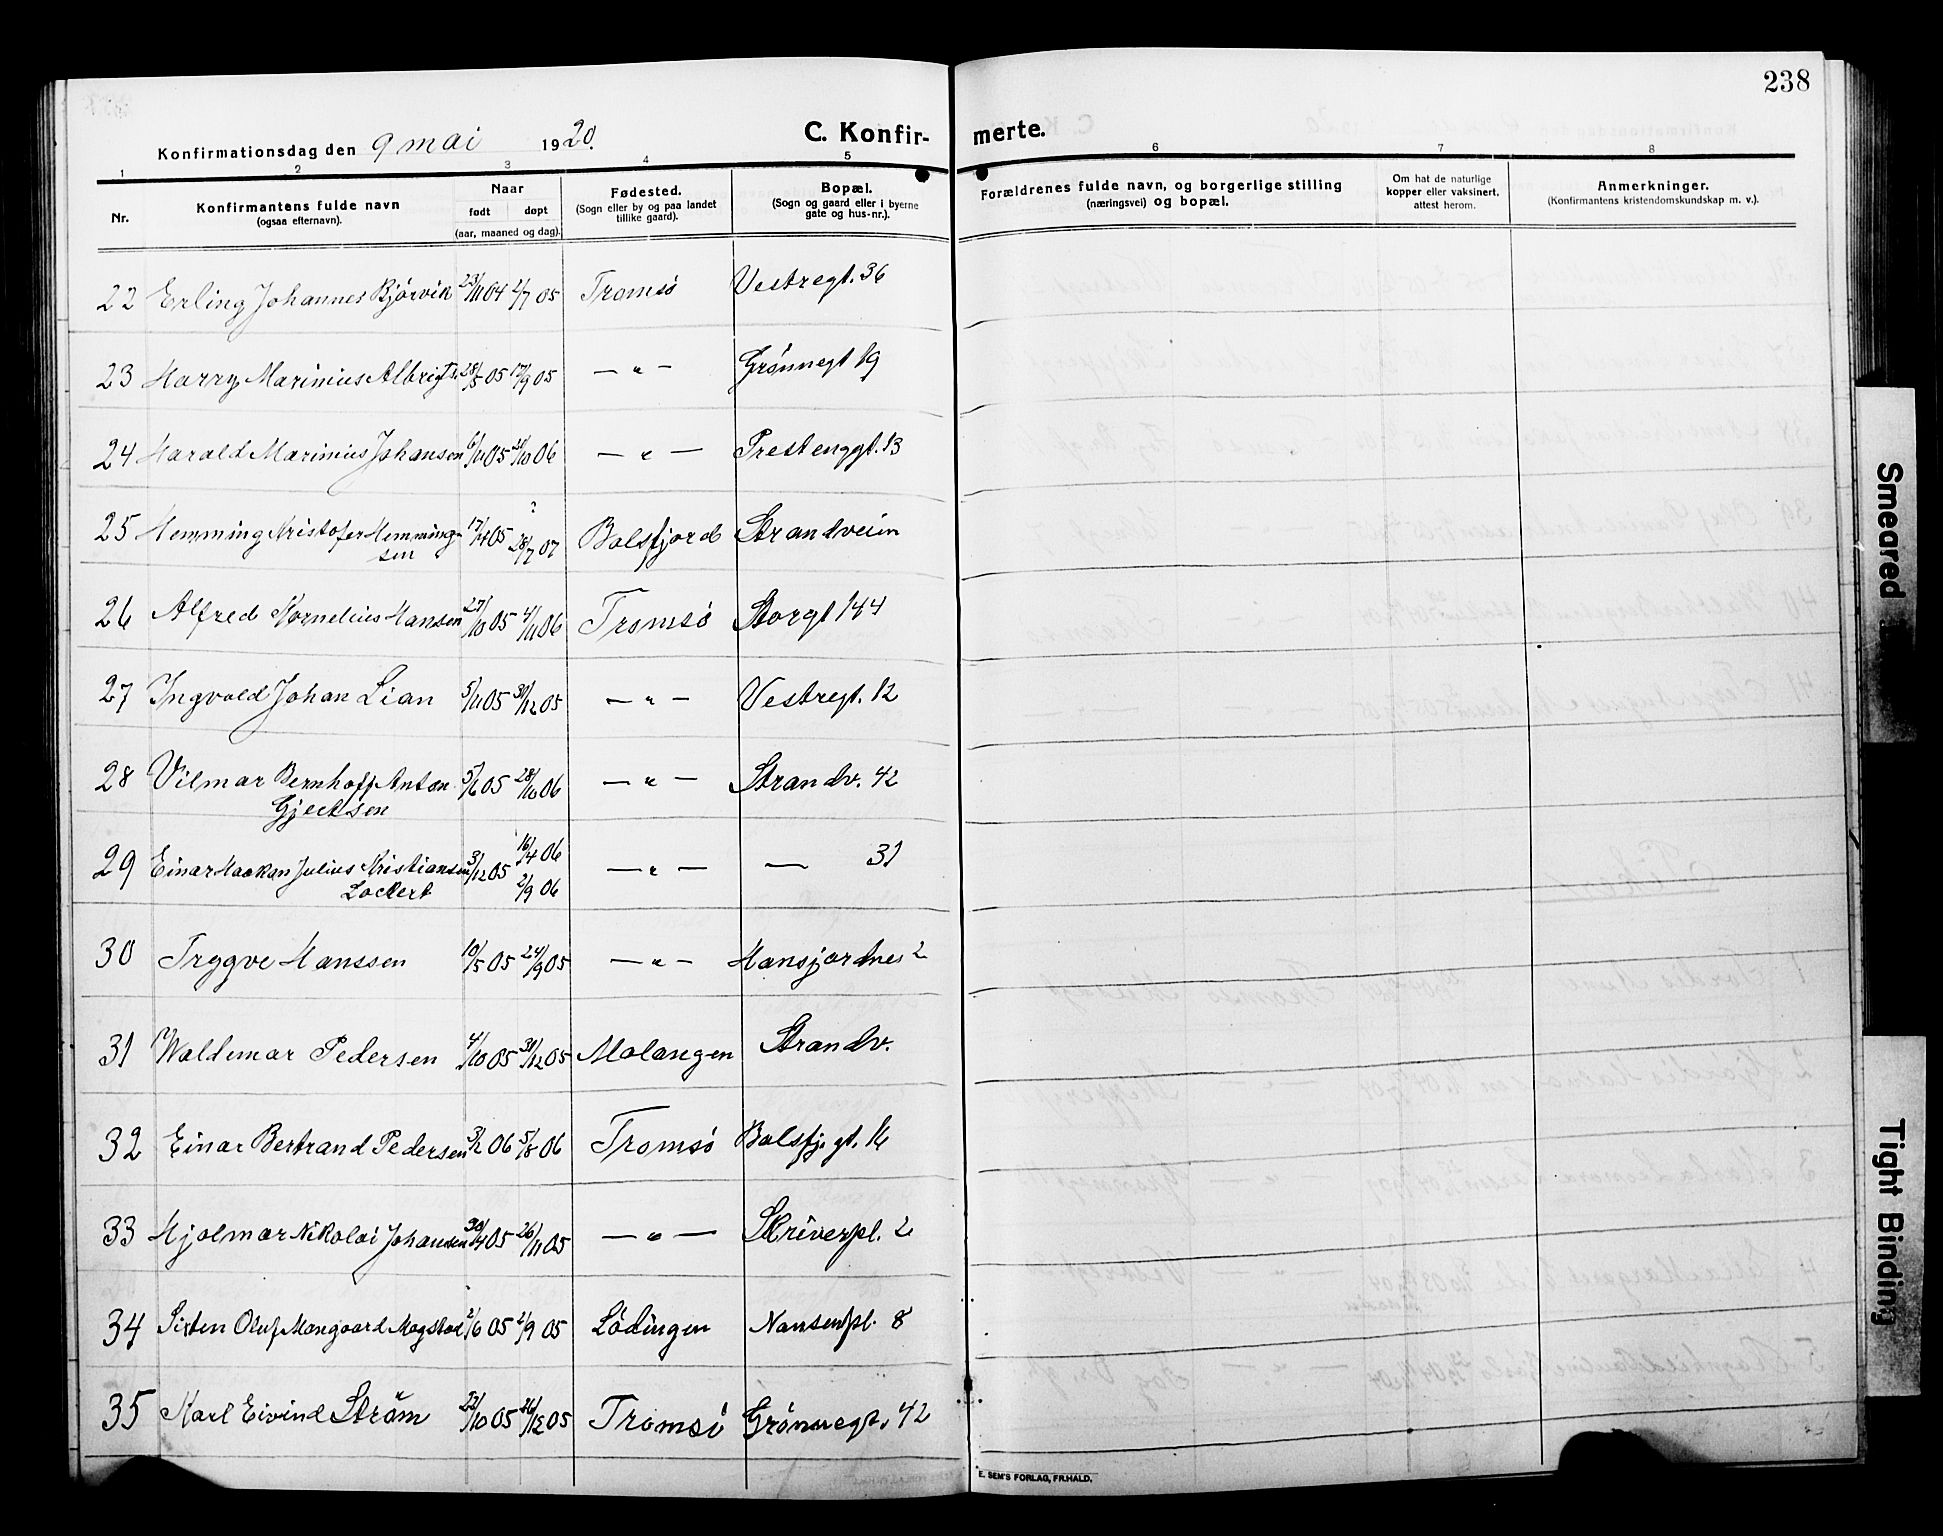 238
Konfirmationsdag den 9 mai 1920.
C. Konfir-
merte.
1 2 3 4 5 6 7 8
Nr.
Konfirmantens fulde navn
(ogsaa efternavn).
Naar
født døpt
(aar, maaned og dag).
Fødested.
(Sogn eller by og paa landet
tillike gaard).
Bopæl.
(Sogn og gaard eller i byerne
gate og hus-nr.).
Forældrenes fulde navn, og borgerlige stilling
(næringsvei) og bopæl.
Om hat de naturlige
kopper eller vaksinert.
attest herom.
Anmerkninger.
(Konfirmantens kristendomskundskap m. v.).
22 Erling Johannes Bjørvik 23/11 04 2/7 05 Tromsø Vestregt. 36
23 Harry Marinius Albrigts. 28/5 05 17/9 05 — " — Grønnegt 19
24 Harald Marinius Johansen 6/11 05 21/10 06 — " — Prestenggt. 13
?
25 Hemming Kristofer Hemming- 17/4 05 28/7 07 Balsfjord Strandveien
sen
26 Alfred Kornelius Hansen 27/10 05 4/11 06 Tromsø Storgt 144
27 Ingvald Johan Lian 5/11 05 31/12 05 — " — Vestregt. 12
28 Vilmar Bernhoff Anton 5/6 05 28/10 06 — " — Strandv. 42
Gjertsen
16/4 06
29 Einar Haakan Julius Kristiansen 3/12 05 — " — — 31
Lockert 2/9 06
30 Trygve Hanssen 10/5 05 24/9 05 — " — Hansjordnes 2
31 Waldemar Pedersen 4/10 05 31/12 05 Malangen Strandv.
32 Einar Bertrand Pedersen 3/2 06 5/8 06 Tromsø Balsfj. gt. 16
33 Hjalmar Nikolai Johansen 30/4 05 26/11 05 — " — Skriverpl. 2
34 Sixten Oluf Mangaard Magstad 2/6 05 2/9 05 Lødingen Nansenpl. 8
35 Karl Eivind Strøm 22/10 05 26/12 05 Tromsø Grønnegt. 42
E. SEM'S FORLAG, FR.HALD.
Smeared
Tight Binding